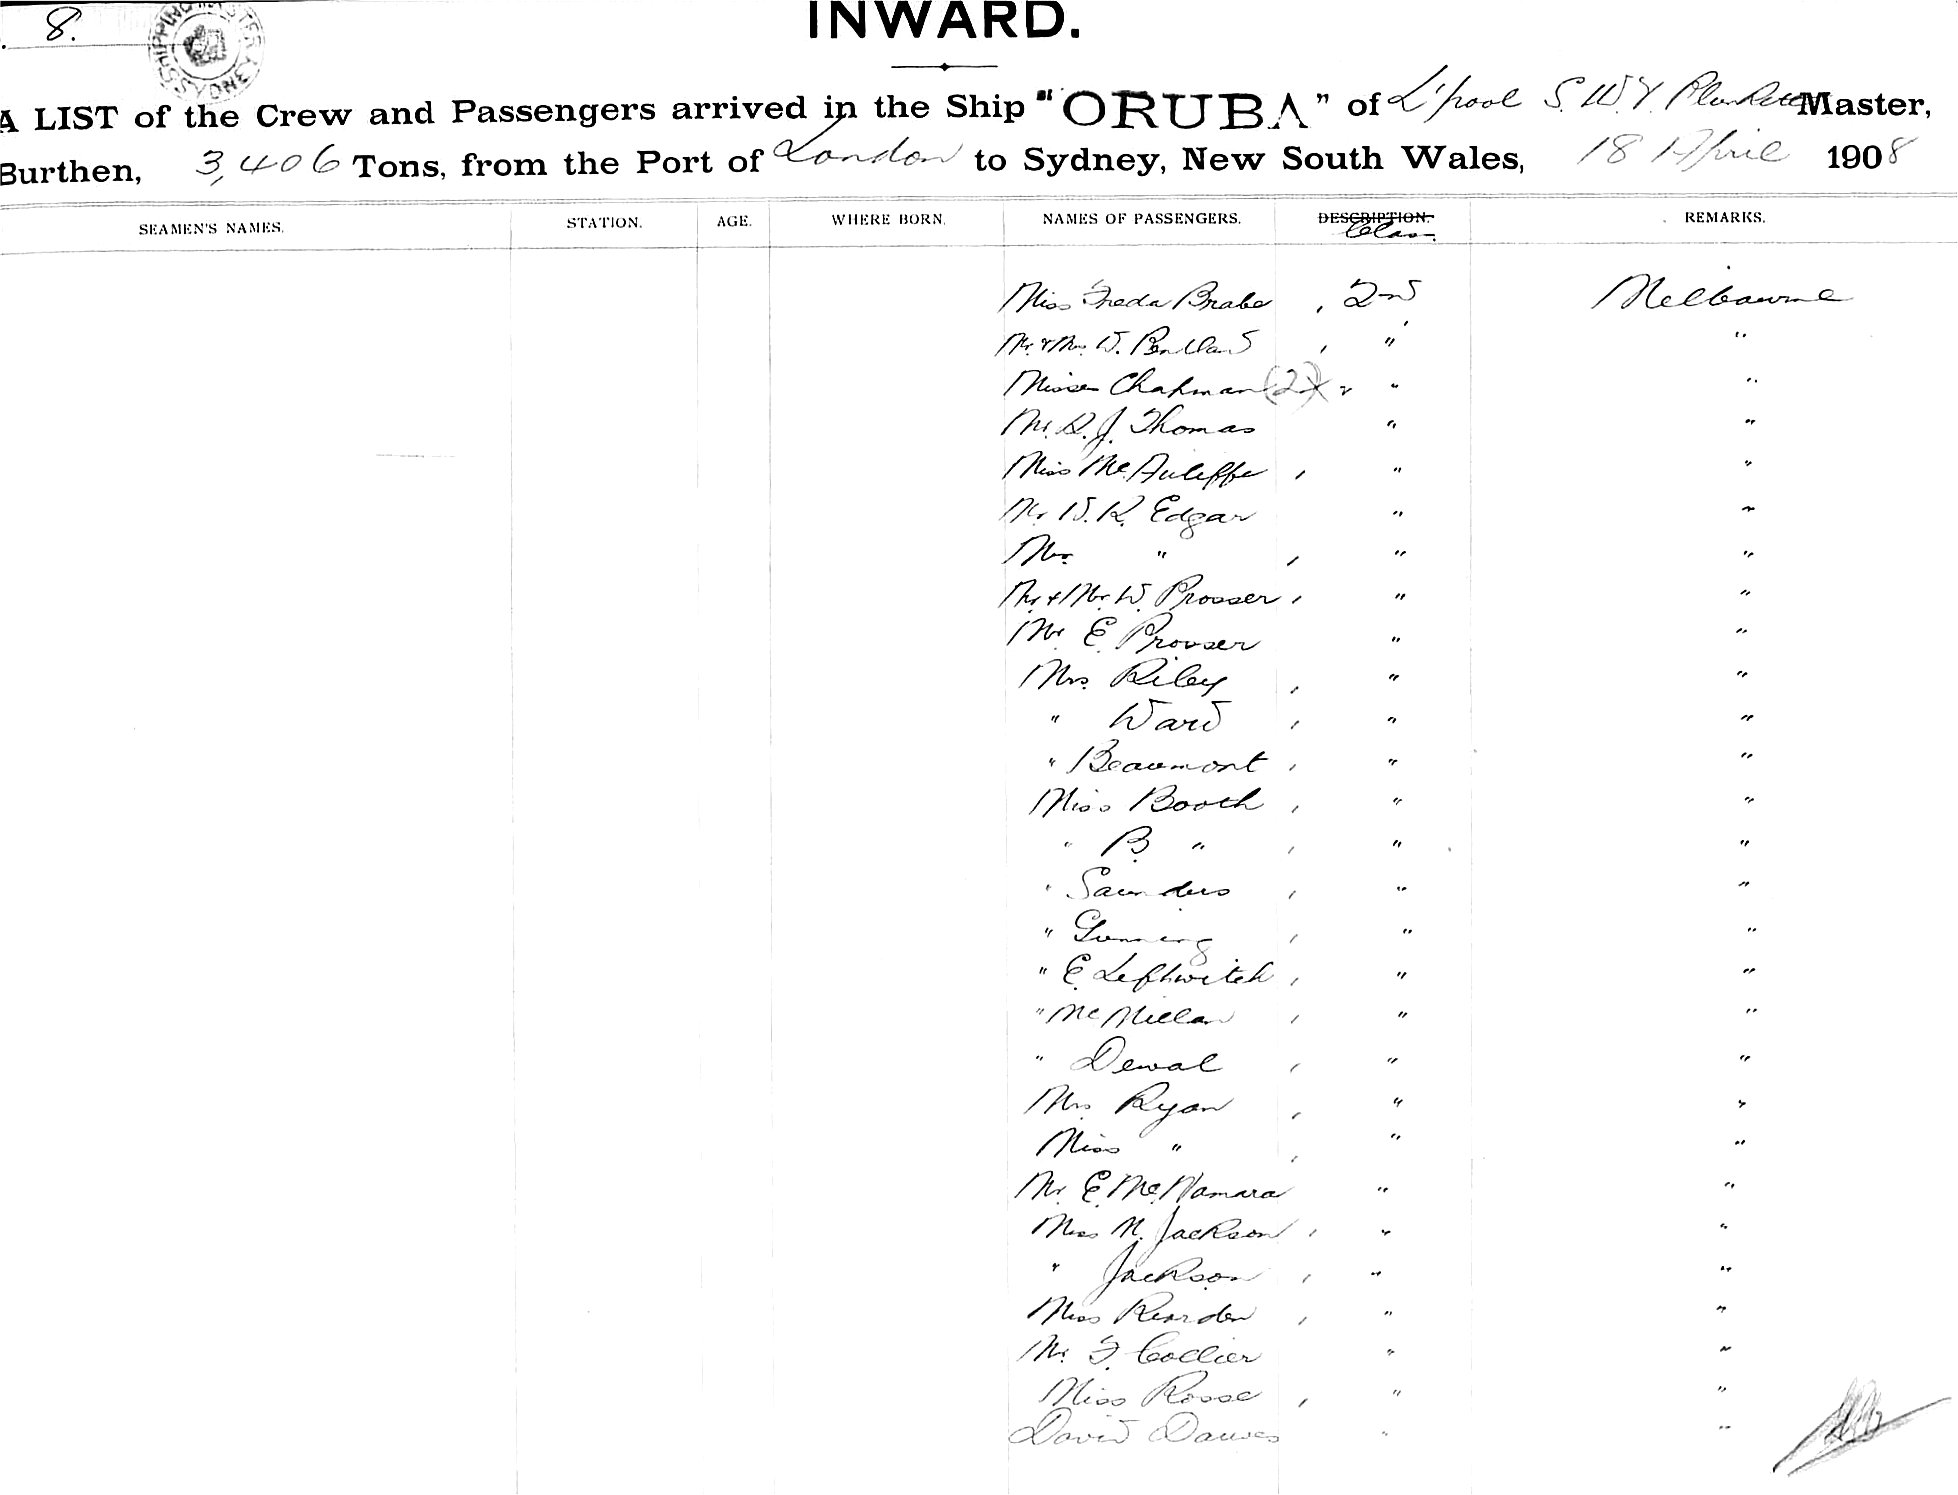 8.
INWARD.
A LIST of the Crew and Passengers arrived in the Ship "ORUBA" of L'pool S. W. Y. Master,
Burthen, 3,406 Tons, from the Port of London to Sydney, New South Wales, 18 April 1908
SEAMEN'S NAMES. STATION. AGE. WHERE BORN. NAMES OF PASSENGERS. DESCRIPTION. REMARKS.
Class.
Miss Freda Brabe , 2nd Melbourne
Mr. & Mrs. W. Pentland , " "
Misses Chapman (2) " "
Mr. D. J. Thomas " "
Miss McAuliffe , " "
Mr W. K. Edgar " "
Mrs. " , " "
Mr. & Mrs. W. Prosser , " "
Mr E. Prosser " "
Mrs. Riley , " "
" Ward , " "
" Beaumont , " "
Miss Booth , " "
" B. " , " "
" Saunders , " "
" Gunning , " "
" E. Leftwitch , " "
" McMillan , " "
" Dewal , " "
Mrs Ryan , " "
Miss " , " "
Mr E. McNamara " "
Miss N. Jackson , " "
" Jackson , " "
Miss Rearden , " "
Mr. F. Collier " "
Miss Rosse , " "
David Dawes " "